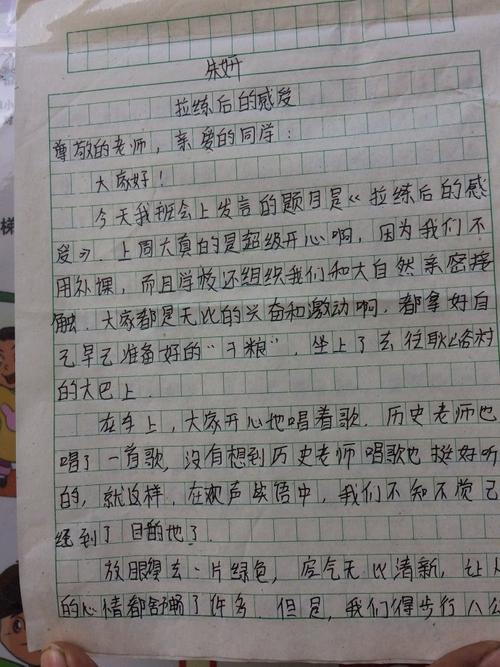 朱妍
拉练后的感发
尊敬的老师，亲爱的同学：
大家好！
今天我班会上发言的题目是《拉练后的感
发》．上周大真的是超级开心啊，因为我们不
用补课，而且学校还组织我们和大自然亲密接
触．大家都是无比的兴奋和激动啊．都拿好自
己早已准备好的“干粮”．坐上了去往耿山各村
的大巴上．
在车上，大家开心地唱着歌．历史老师也
唱了一首歌，没有想到历史老师唱歌也挺好听
的，就这样．在欢声笑语中，我们不知不觉已
经到了目的地了．
放眼望去一片绿色，空气无比清新，让人
的心情都舒畅了许多．但是，我们得步行八公
梯